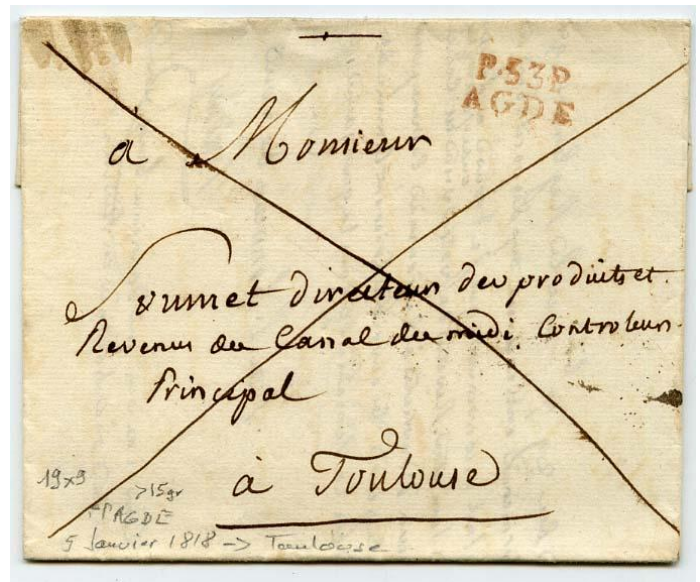 P.53.P
AGDE
à Monsieur
Soumet directeur des produits et
Revenus du Canal du midi Controleur
Principal
à Toulouse
19x9
>15gr
PAGDE
5 Janvier 1818 -> Toulouse